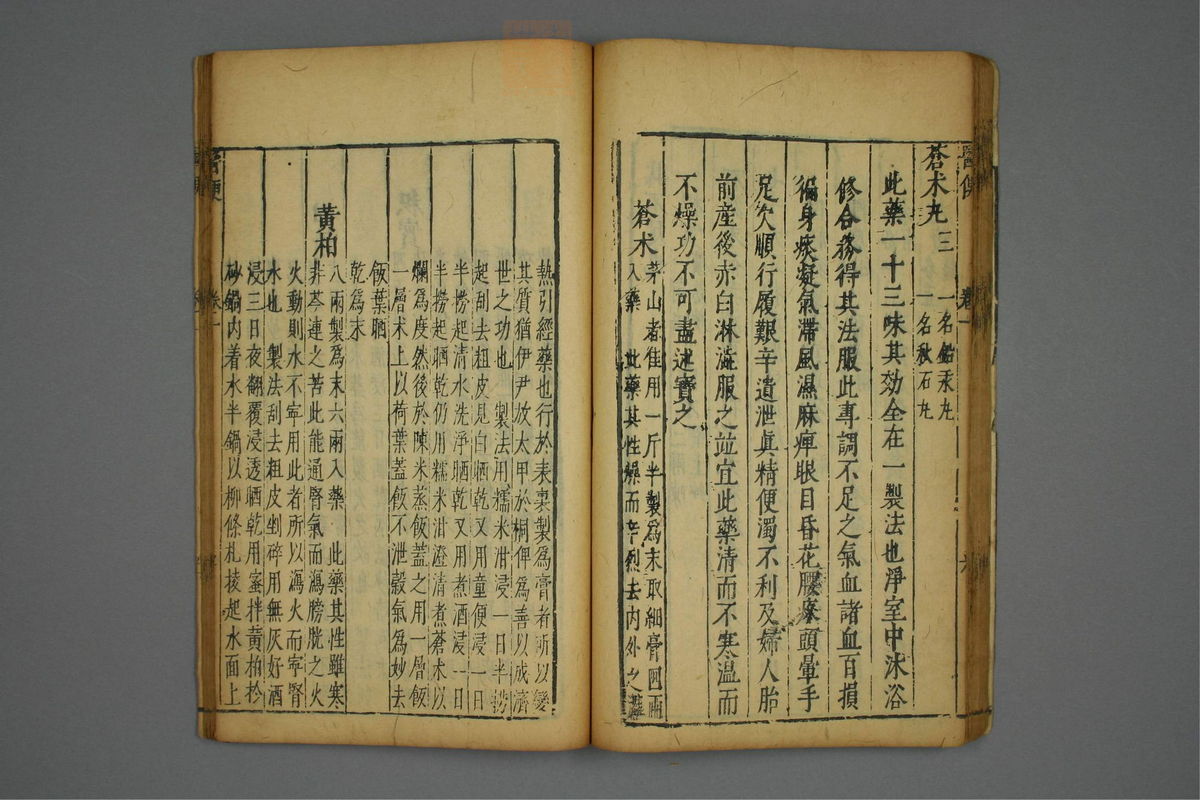 蒼朮丸三
一名鉛汞丸
一名秋石丸
此藥一十三味其効全在一製法也淨室中沐浴
修合務得其法服此專調不足之氣血諸血百損
徧身痰凝氣滯風濕麻痺眼目昏花腰疼頭暈手
足欠順行履艱辛遺泄眞精便濁不利及婦人胎
前産後赤白淋漓服之並宜此藥清而不寒温而
不燥功不可盡述寳之
蒼朮
茅山者佳用一斤半製爲末取細膏四兩
入藥 此藥其性燥而辛烈去内外之
熱引經藥也行於表裏製爲膏者所以變
其質猶伊尹放太甲於桐俾爲善以成濟
世之功也 製法用糯米泔浸一日半撈
起刮去粗皮見白晒乾又用童便浸一日
半撈起清水洗淨晒乾又用煮酒浸一日
半撈起晒乾仍用糯米泔澄清煮蒼朮以
爛爲度然後於陳米蒸飯蓋之用一層飯
一層朮上以荷葉蓋飯不泄穀氣爲妙去
飯葉晒
乾爲末
黄柏
八兩製爲末六兩入藥 此藥其性雖寒
非芩連之苦此能通腎氣而瀉膀胱之火
火動則水不寧用此者所以瀉火而寧腎
水也 製法刮去粗皮剉碎用無灰好酒
浸三日夜翻覆浸透晒乾用蜜拌黄柏於
砂鍋内着水半鍋以柳條札接起水面上
醫便
卷一
六
醫便
卷一